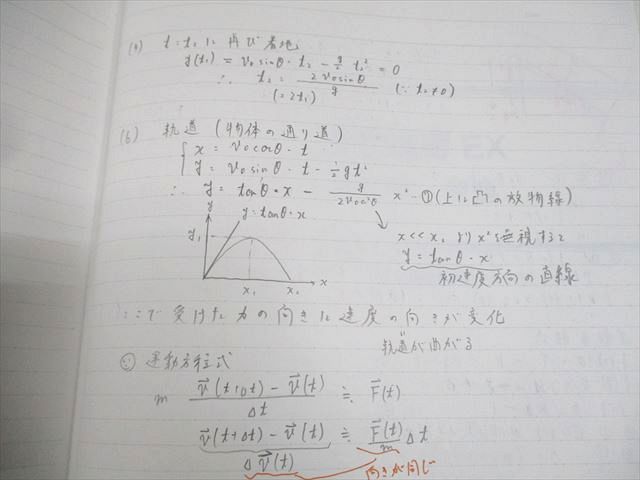 t=t₂に再び着地
y(t₂) = v₀sinθ・t₂ - g/2 t₂² = 0
∴ t₂ = 2v₀sinθ/g (∵ t₂≠0)
(=2t₁)
(6) 軌道 (物体の通り道)
x = v₀cosθ・t
y = v₀sinθ・t - ½gt²
∴ y = tanθ・x - g/2v₀c²θ x² …①(上に凸の放物線)
y=tanθ・x
y₁
x₁ x₂ x
x<<x₁ より x²を無視すると
y = tanθ・x
初速度方向の直線
ここで受けた力の向きに速度の向きが変化
軌道が曲がる
運動方程式
m v⃗(t+Δt) - v⃗(t)/Δt ≒ F⃗(t)
v⃗(t+Δt) - v⃗(t) ≒ F⃗(t)/m Δt
Δv⃗(t)
向きが同じ